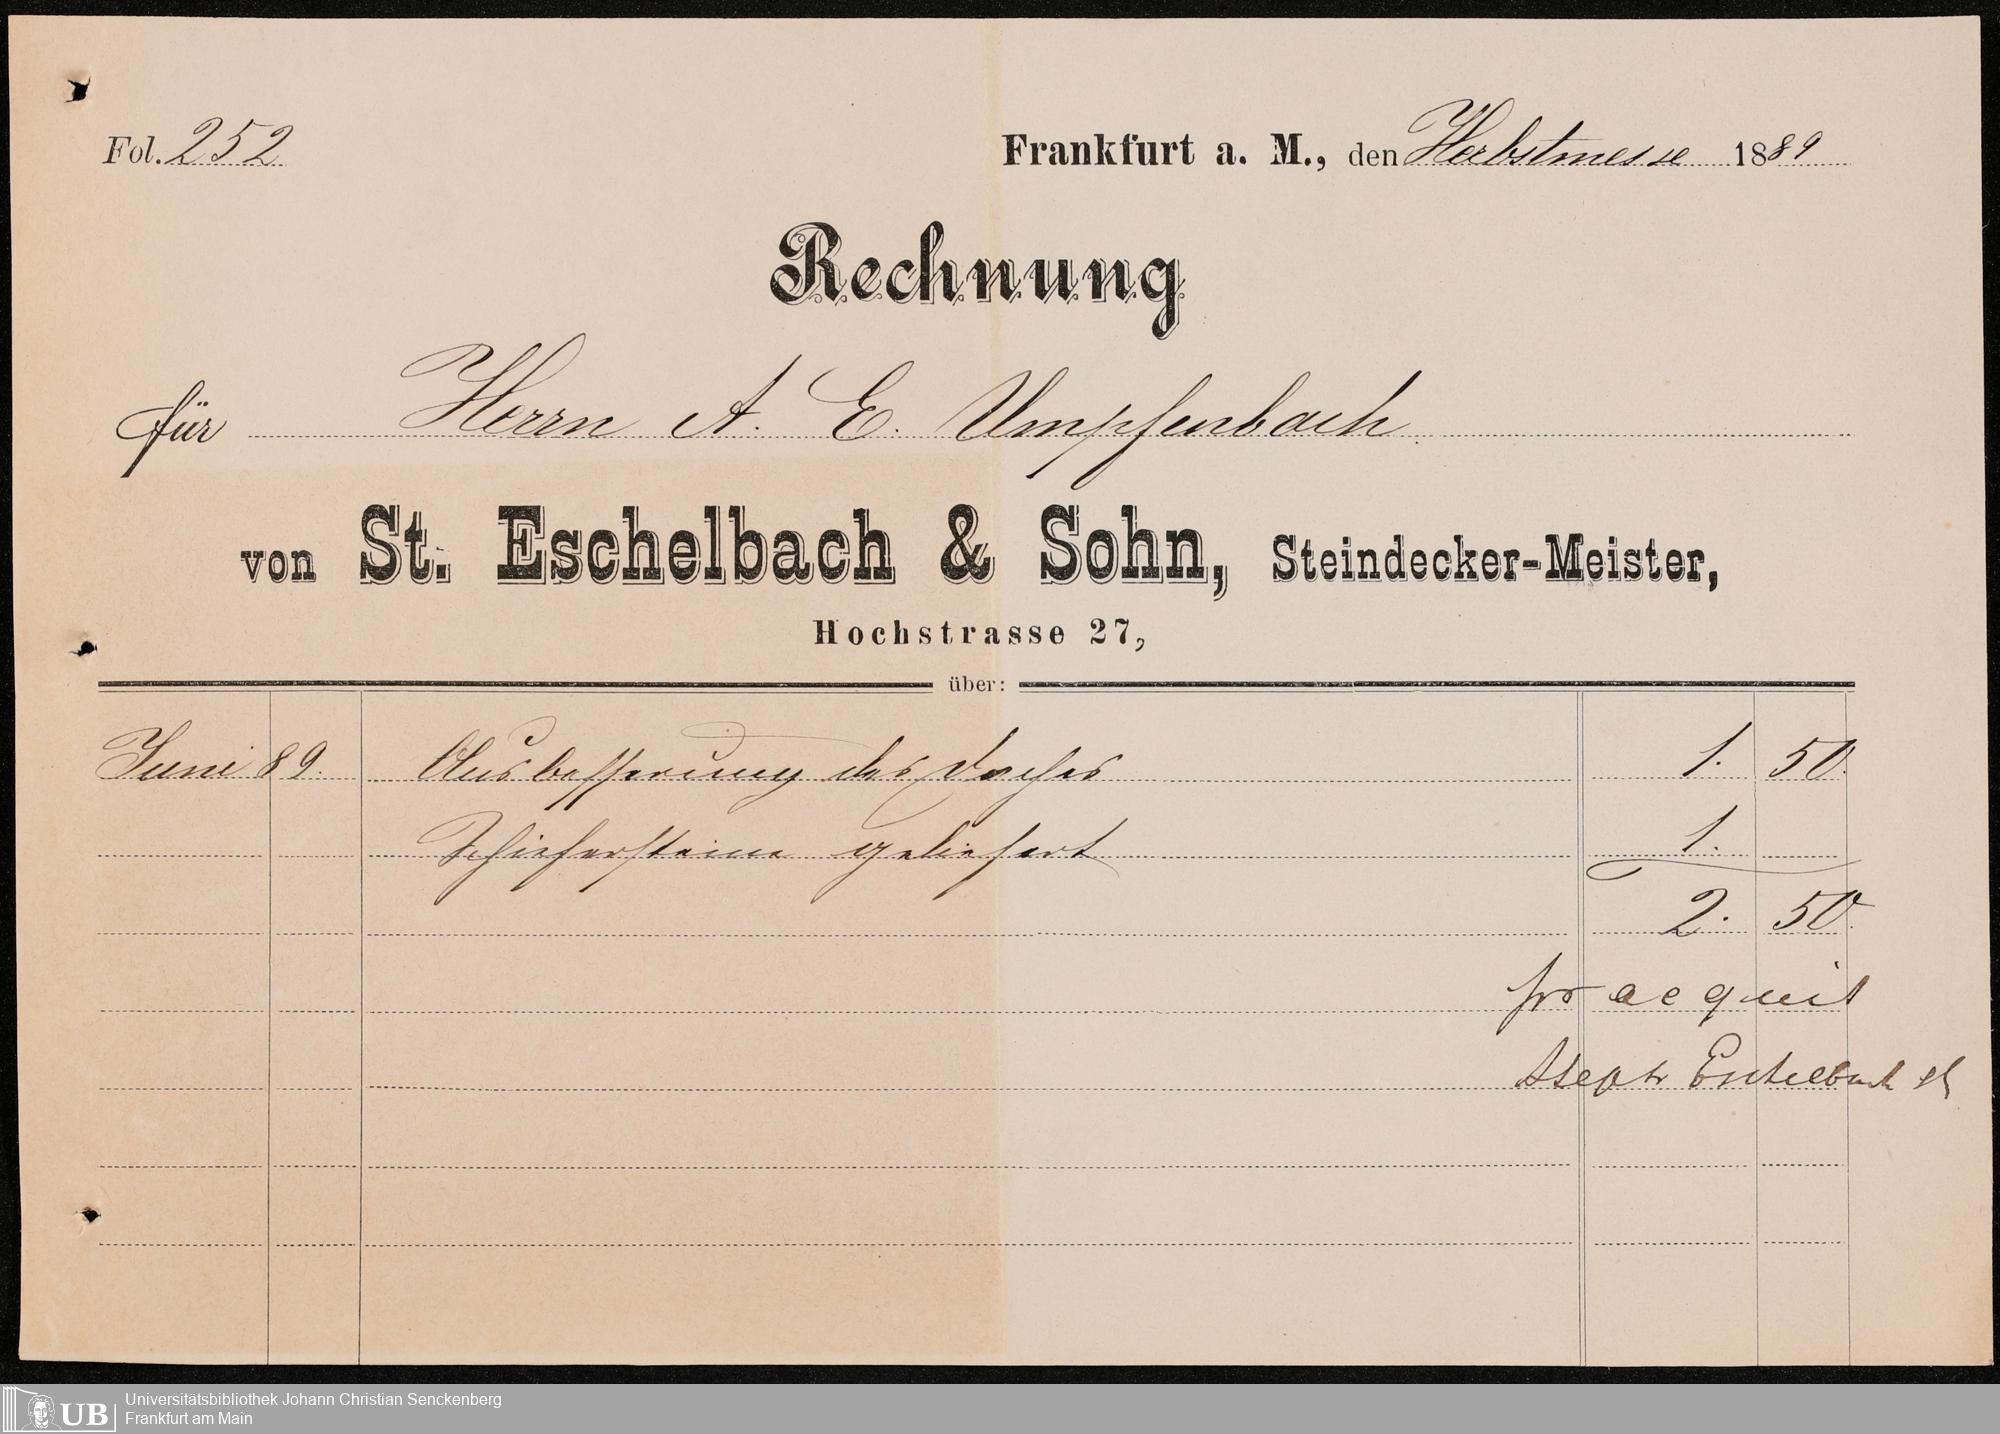 Fol. 252
Frankfurt a. M., den Herbstmesse 1889
Rechnung
für Herrn A. E. Umpfenbach
von St. Eschelbach & Sohn, Steindecker-Meister,
Hochstrasse 27,
über:
Juni 89. Ausbesserung des Daches 1. 50.
Schiefersteine geliefert 1.
2. 50.
pr acquit
Steph Eschelbach
UB
Universitätsbibliothek Johann Christian Senckenberg
Frankfurt am Main